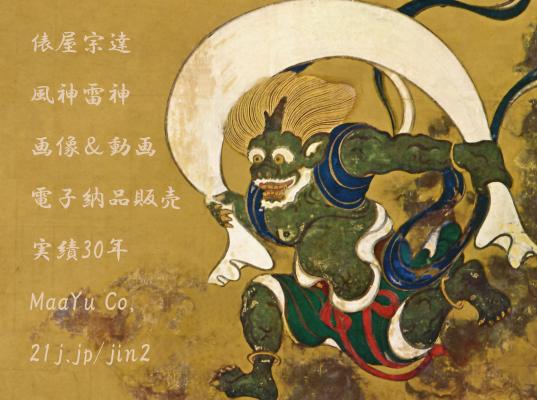 俵屋宗達
風神雷神
画像＆動画
電子納品販売
実績30年
MaaYu Co,
21j.jp/jin2